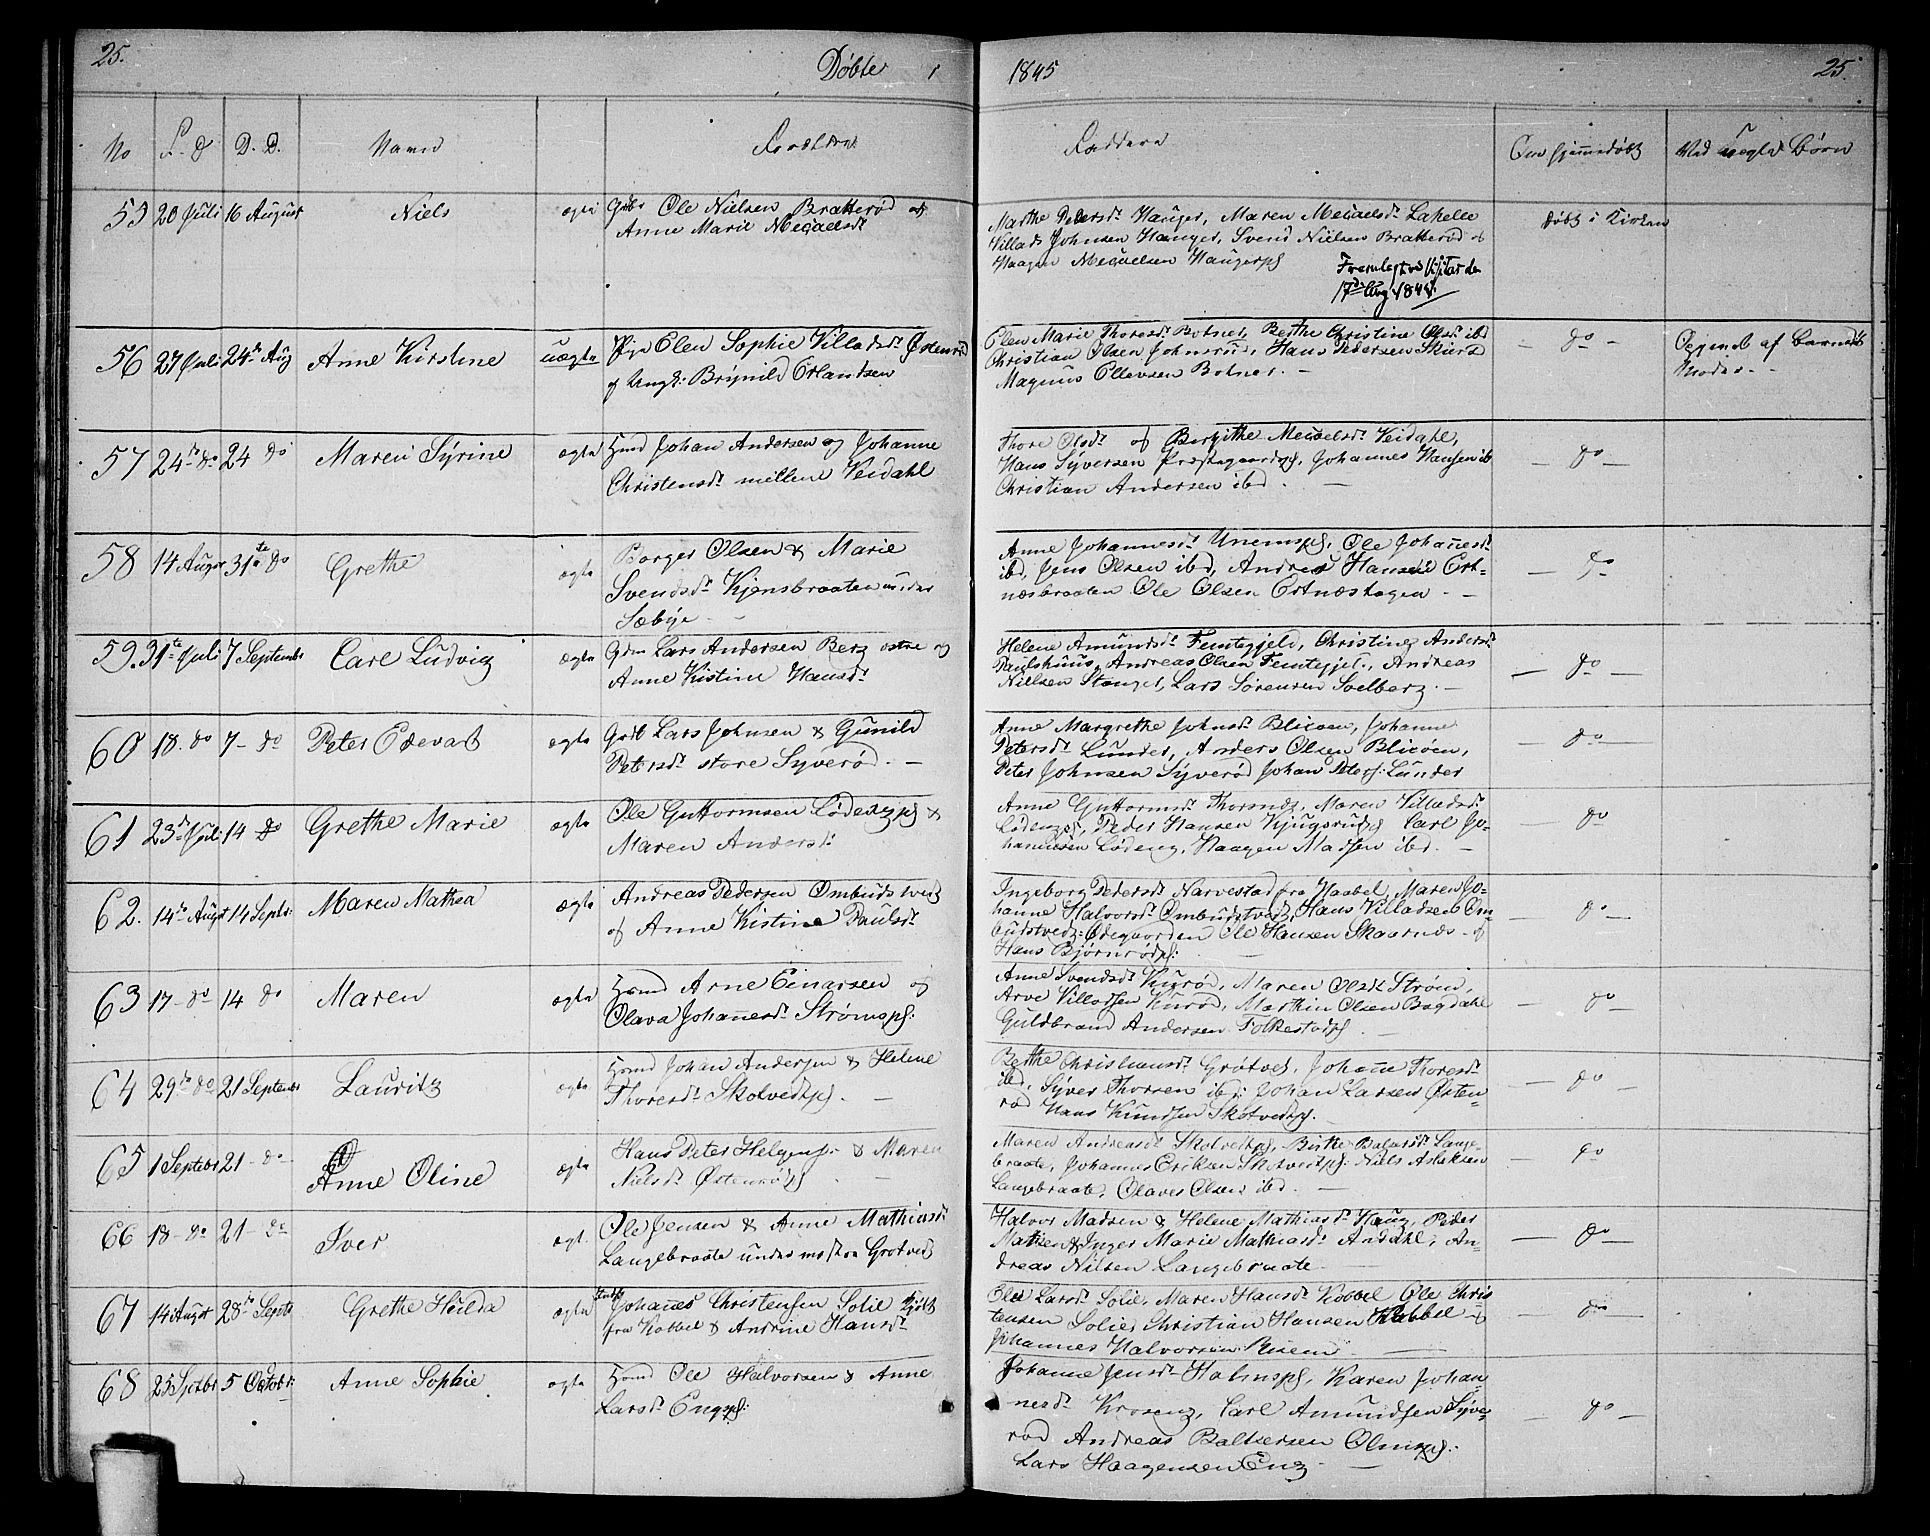 25. Døbte 1845 25.
No F. D D. D. Navn Forældre Faddere Om hjemmedøbt Ved uægte Børn
55 20 Juli 16 August Niels ægte Gdbr Ole Nielsen Bratterød og
Anne Marie Micaelsdr
Marthe Pedersdr Hauger, Maren Micaelsdr
Villads Johnsen Hauger, Svend Nielsen Bratterød og
Haagen Micaelsen Haugerpl
17de Aug 1845.
døbt i Kirken
56 27 Juli 24de Aug Anne Kirstine uægte Pige Elen Sophie Villadsdr Østenrød
og Ungk: Brynild Erlandsen
Elen Marie Thoresdr Botner, Berthe Christine Olsdr ibd
Christian Olsen Johnsrud, Hans Pedersen
Magnus Ellevsen Botner. -
- do -
Opgivet af Barnets
Moder. -
57 24de do 24 do Maren Syrine ægte Hmd Johan Andersen og Johanne
Christensdr mellem Veidahl
Thore Olsdr og Bergithe Micaelsdr Veidahl,
Hans Syversen Præstegaardspl, Johannes Hansen ib
Christian Andersen ibd. -
- do -
58 14 August 31te do Grethe ægte Borger Olsen & Marie
Svendsdr Kjensbraaten under
Sæbye. -
Anne Johannesdr Unemspl, Ole Johanesdr
ibd, Jens Olsen ibd, Andreas Hansen Ort-
næsbraaten Ole Olsen Ortnæshagen. -
- do -
59. 31te Juli 7 Septembr Carl Ludvig ægte Gdm Lars Andersen Berg østre og
Anne Kistine Hansdr
Helene Amundsdr Femtegjeld, Christine Andersdr
Paulshuus, Andreas Olsen Femtegjel., Andreas
Nielsen Stanger, Lars Sørensen Solberg. -
- do -
60 18. do 7 - do Peter Edevart ægte Gdb Lars Johnsen & Gunild
Petersdr store Syverød. -
Anne Margrethe Johnsdr Blixøen, Johanne
Petersdr Lunder, Anders Olsen Blixøen,
Peter Johnsen Syverød Johan Peters: Lunder
- do -
61 23de Juli 14 do Grethe Marie ægte Ole Guttormsen Lødengpl &
Maren Andersdr
Anne Guttormsdr Thorsnes, Maren Villadsdr
Lødengpl, Peder Hansen Carl Jo-
hannesen Lødeng, Haagen Madsen ibd. -
- do -
62. 14de August 14 Septr: Maren Mathea ægte Andreas Pedersen Ombudstvedt
og Anne Kistine Paulsdr
Ingeborg Pedersdr Narvestad fra Haabel, Maren Jo-
hanne Halvorsdr Ombudstvedt, Hans Villadsen Om-
budstvedt: Ødegaarden Ole Hansen Skaarnæs - og
Hans Bjørnrødpl: -
- do -
63 17 - do 14 do Maren ægte Hmd Arne Einarsen og
Olava Johanesdr Strømspl:
Anne Svendsdr Kurød, Maren Olsdr Strøm,
Arve Villadsen Kurød, Marthin Olsen Bogdahl
Guldbrand Andersen Folkestadpl. -
- do -
64 29de do 21 Septembr Lauritz ægte Hmd Johan Andersen & Helene
Thoresdr Skotvedtpl. -
Berthe Christiansdr Grøtved, Johane Thoresdr
ibd, Syver Thorsen ibd: Johan Larsen Østen-
rød Hans Knudsen Skotvedtpl.
- do -
65 1 Septebr 21 - do Anne Oline ægte Hans Peter Helgens: & Maren
Nielsdr Østenrødpl -
Maren Andreasdr Skotvedtpl, Birthe Lange-
braate, Johannes Eriksen Skotvedtpl: Niels Aslaksen
Langebraate, Olaves Olsen ibd. -
- do -
66 18 - do 21 - do Iver ægt. Ole Jensen & Anne Mathiasdr
Langebraate under Grøtved
Halvor Madsen & Helene Mathiasdr Haug, Peder
Matisen & Inger Marie Mathiasdr Andahl, An-
dreas Nilsen Langebraate. -
- do -
67 14 August 28de Septr Grethe Hulda ægte Johanes Christensen Solie
fra Kobbel & Andrine Hansdr
Larsdr Solie, Maren Hansdr Kobbel Ole Chris
tensen Solie, Christian Hansen Kobbel - og
Johannes Halvorsen Risem -
- do -
68 25 Septbr 5 Octobr: Anne Sophie ægte Hmd Ole Halvorsen & Anne
Larsdr Engspl:
Johanne Jensdr Holmspl, Karen Johan-
nesdr Kroseng, Carl Amundsen Syve-
rød Andreas Baltsersen
Lars Haagensen Eng -
- do -